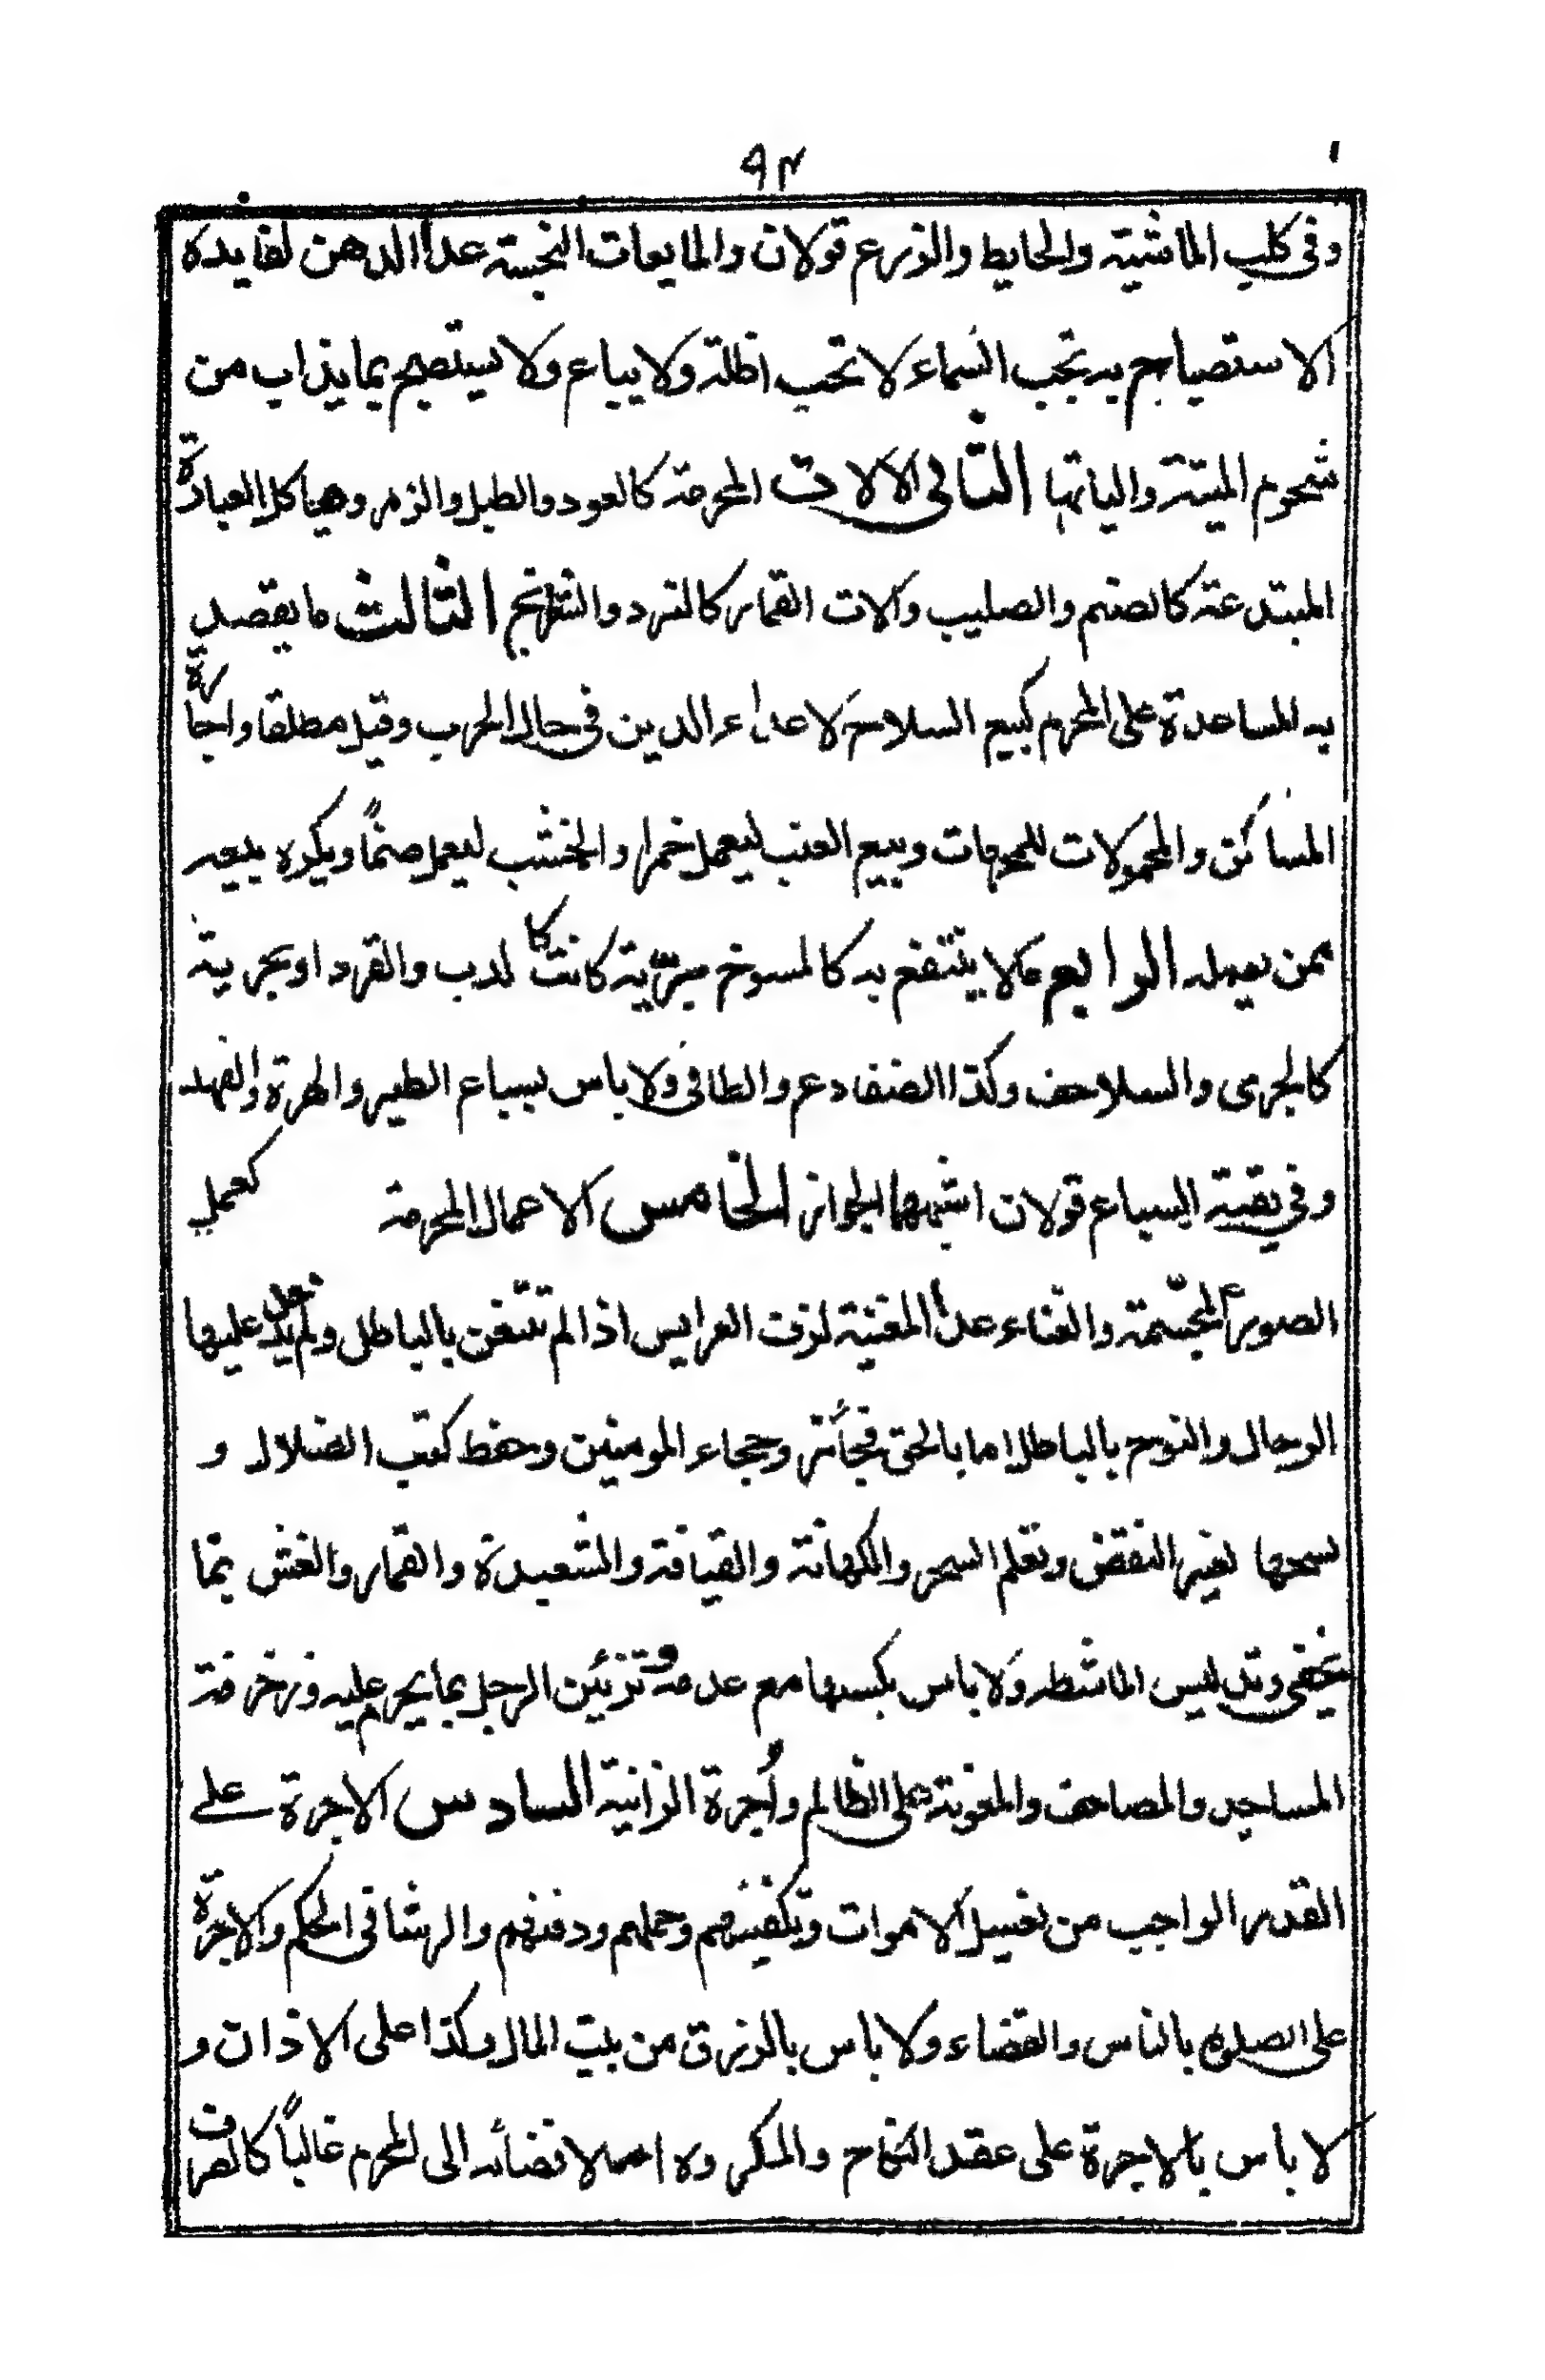 ٩٢
وفى كلب الماشية والحايط والزرع قولان والمايعات النجسة عدا الدهن لفايدة
الاستصباح به تحت السماء لا تحت اظلة ولا يباع ولا يستصبح بما يذاب من
شحوم الميتة والياتها الثانى الالات المحرمة كالعود والطبل والزمر وهياكل العبادة
المبتدعة كالصنم والصليب وآلات القمار كالنرد والشطرنج الثالث ما يقصد
به المساعدة على المحرم كبيع السلاح لاعداء الدين فى حال الحرب وقيل مطلقا واجارة
المساكن والحمولات للمحرمات وبيع العنب ليعمل خمرا والخشب ليعمل صنمًا ويكره بيعه
ممن يعمله الرابع ما لا ينتفع به كالمسوخ برّية كانت كالدب والقرد او بحرية
كالجرى والسلاحف وكذا الضفادع والطافى ولا باس بسباع الطير والهرة والفهد
وفى بقية السباع قولان اشبههما الجواز الخامس الاعمال المحرمة كعمل
الصور المجسّمة والغناء عدا المغنية لزف العرايس اذا لم تتغن بالباطل ولم يدخل عليها
الرجال والنوح بالباطل اما بالحق فجائز وهجاء المومنين وحفظ كتب الضلال و
نسخها لغير النقض وتعلم السحر والكهانة والقيافة والشعبدة والقمار والغش بما
يخفى وتدليس الماشطه ولا باس بكسبها مع عدمه وتزئين الرجل بما يحرم عليه وزخرفة
المساجد والمصاحف والمعونة على الظالم واُجرة الزانية السادس الاجرة على
القدر الواجب من تغسيل الاموات وتكفينهم وحملهم ودفنهم والرشا فى الحكم والاجرة
على الصلوة بالناس والقضاء ولا باس بالرزق من بيت المال وكذا على الاذان و
لا باس بالاجرة على عقد النكاح والمكروه اما لافضائه الى المحرم غالبًا كالصرف